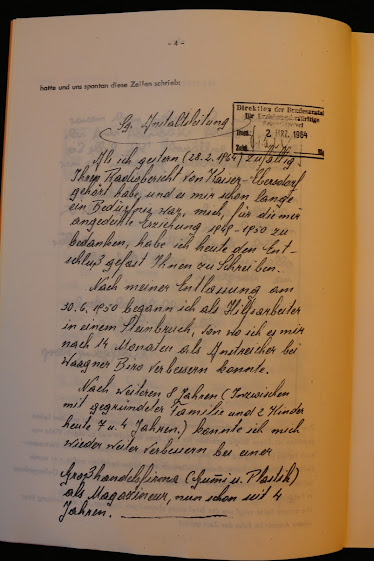 - 4 -
hatte und uns spontan diese Zeilen schrieb:
Sg. Anstaltsleitung
Direktion der Bundesanstalt
für Erziehungsbedürftige
2. MRZ. 1964
Als ich gestern (28.2.1964) zufällig
Ihren Radiobericht von Kaiser-Ebersdorf
gehört habe, und es mir schon lange
ein Bedürfnis war, mich, für die mir
angedeihte Erziehung 1948-1950 zu
bedanken, habe ich heute den Ent-
schluß gefast Ihnen zu Schreiben.
Nach meiner Entlassung am
30.6.1950 begann ich als Hilfsarbeiter
in einem Steinbruch, von wo ich es mir
nach 14 Monaten als Anstreicher bei
Waagner Biro verbessern konnte.
Nach weiteren 8 Jahren (Inzwischen
mit gegründeter Familie und 2 Kinder
heute 7 u. 4 Jahren.) konnte ich mich
wieder weiter verbessern bei einer
Großhandelsfirma (Gumi u. Plastik)
als Magazineur, nun schon seit 4
Jahren.